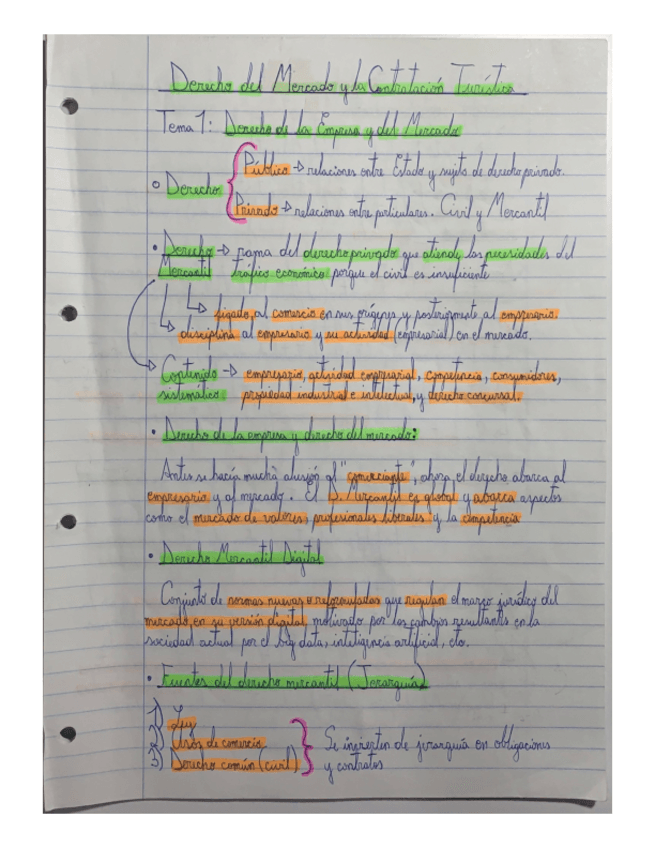 Derecho del Mercado y la Contratación Turística
Tema 1: Derecho de la Empresa y del Mercado
Público → relaciones entre Estado y sujeto de derecho privado.
Derecho
Privado → relaciones entre particulares. Civil y Mercantil
• Derecho → rama del derecho privado que atiende las necesidades del
Mercantil tráfico económico porque el civil es insuficiente
↳ ligado al comercio en sus orígenes y posteriormente al empresario.
↳ disciplina al empresario y su actividad (empresarial) en el mercado.
Contenido → empresario, actividad empresarial, competencia, consumidores,
sistemático: propiedad industrial e intelectual, y derecho concursal.
• Derecho de la empresa y derecho del mercado:
Antes se hacía mucha alusión al "comerciante", ahora el derecho abarca al
empresario y al mercado. El D. Mercantil es global y abarca aspectos
como el mercado de valores, profesionales liberales y la competencia
• Derecho Mercantil Digital
Conjunto de normas nuevas o reformuladas que regulan el marco jurídico del
mercado en su versión digital motivado por los cambios resultantes en la
sociedad actual por el big data, inteligencia artificial, etc.
• Fuentes del derecho mercantil (Jerarquía)
1) Ley
2) Usos de comercio
3) Derecho común (civil)
Se invierten de jerarquía en obligaciones
y contratos